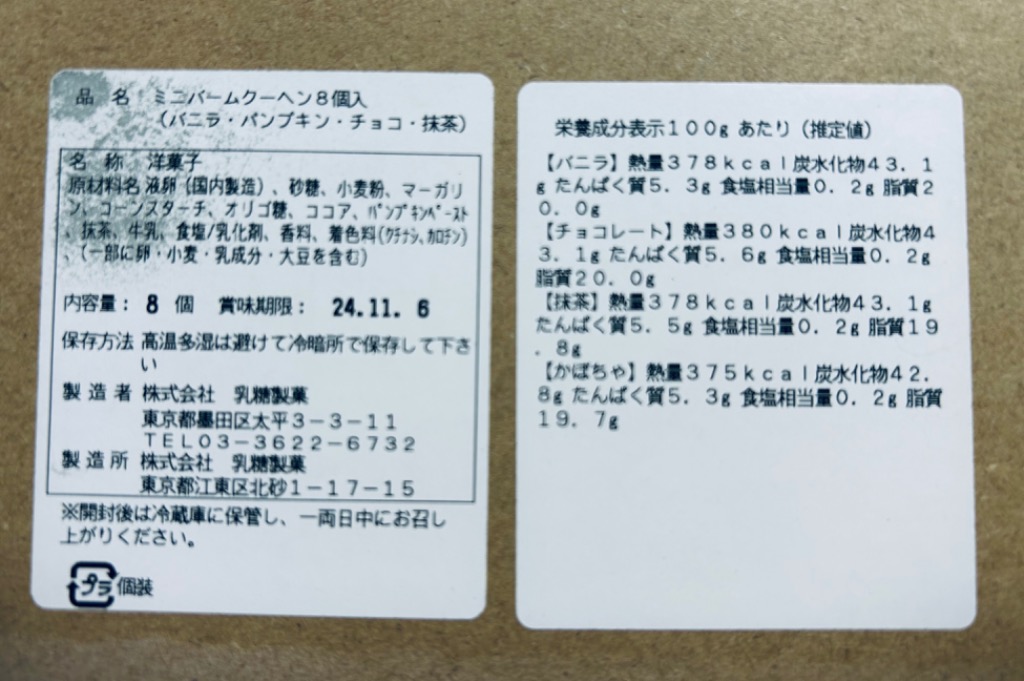 品 名 ミニバームクーヘン8個入
(バニラ・パンプキン・チョコ・抹茶)
名 称 洋菓子
原材料名 液卵(国内製造)、砂糖、小麦粉、マーガリ
ン、コーンスターチ、オリゴ糖、ココア、パンプキンペースト
、抹茶、牛乳、食塩/乳化剤、香料、着色料(クチナシ、カロチン)
、(一部に卵・小麦・乳成分・大豆を含む)
内容量: 8 個 賞味期限: 24.11. 6
保存方法 高温多湿は避けて冷暗所で保存して下さ
い
製 造 者 株式会社 乳糖製菓
東京都墨田区太平3-3-11
TEL03-3622-6732
製 造 所 株式会社 乳糖製菓
東京都江東区北砂1-17-15
※開封後は冷蔵庫に保管し、一両日中にお召し
上がりください。
プラ 個装
栄養成分表示100g あたり(推定値)
【バニラ】熱量378kcal炭水化物43.1
g たんぱく質5.3g 食塩相当量0.2g 脂質2
0.0g
【チョコレート】熱量380kcal炭水化物4
3.1g たんぱく質5.6g 食塩相当量0.2g
脂質20.0g
【抹茶】熱量378kcal炭水化物43.1g
たんぱく質5.5g 食塩相当量0.2g 脂質19
.8g
【かぼちゃ】熱量375kcal炭水化物42.
8g たんぱく質5.3g 食塩相当量0.2g 脂質
19.7g